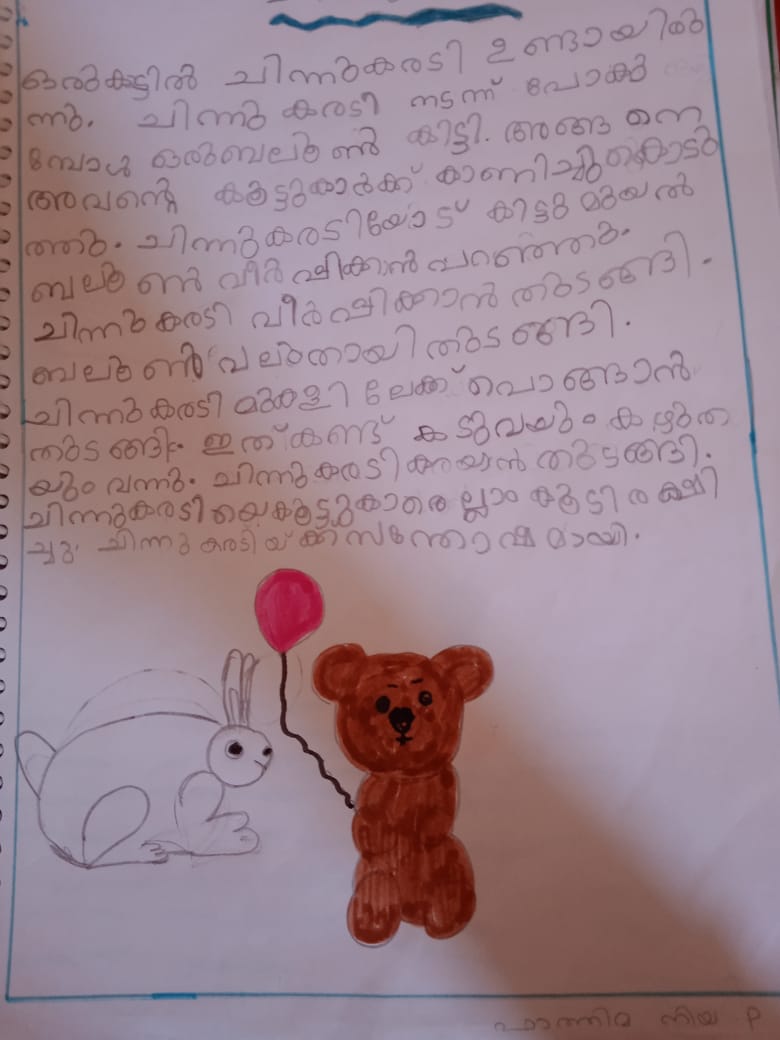 ഒരുകട്ടിൽ ചിന്നുകരടി ഉണ്ടായിരു
ന്നു. ചിന്നു കരടി നടന്ന് പോകു
മ്പോൾ ഒരുബലൂൺ കിട്ടി. അങ്ങനെ
അവന്റെ കൂട്ടുകാർക്ക് കാണിച്ചുകൊടു
ത്തു. ചിന്നുകരടിയോട് കിട്ടു മുയൽ
ബലൂൺ വീർപ്പിക്കാൻ പറഞ്ഞു.
ചിന്നുകരടി വീർപ്പിക്കാൻ തുടങ്ങി.
ബലൂൺ വലുതായി തുടങ്ങി.
ചിന്നുകരടി മുകളിലേക്ക് പൊങ്ങാൻ
തുടങ്ങി. ഇത്കണ്ട് കടുവയും കഴുത
യും വന്നു. ചിന്നുകരടി കരയാൻ തുടങ്ങി.
ചിന്നുകരടിയെകൂട്ടുകാരെല്ലാം കൂടി രക്ഷി
ച്ചു. ചിന്നുകരടിയ്ക്ക് സന്തോഷമായി.
ഫാത്തിമ നിയ P